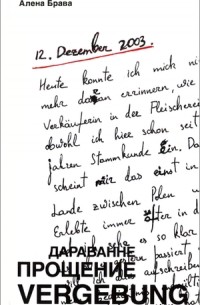 Алена Брава
12. Dezember 2003.
Heute konnte ich mich ni
mehr daran errinnern, wie
Verkäuferin in der Fleischerei
obwohl ich hier schon seit
jahren Stammkunde ein. Da
scheint mir das einst in
Lande zwischen Polen u
Erlebte immer öfter in d
es so klar
passiert
ДАРАВАННЕ
ПРОЩЕНИЕ
VERGEBUNG